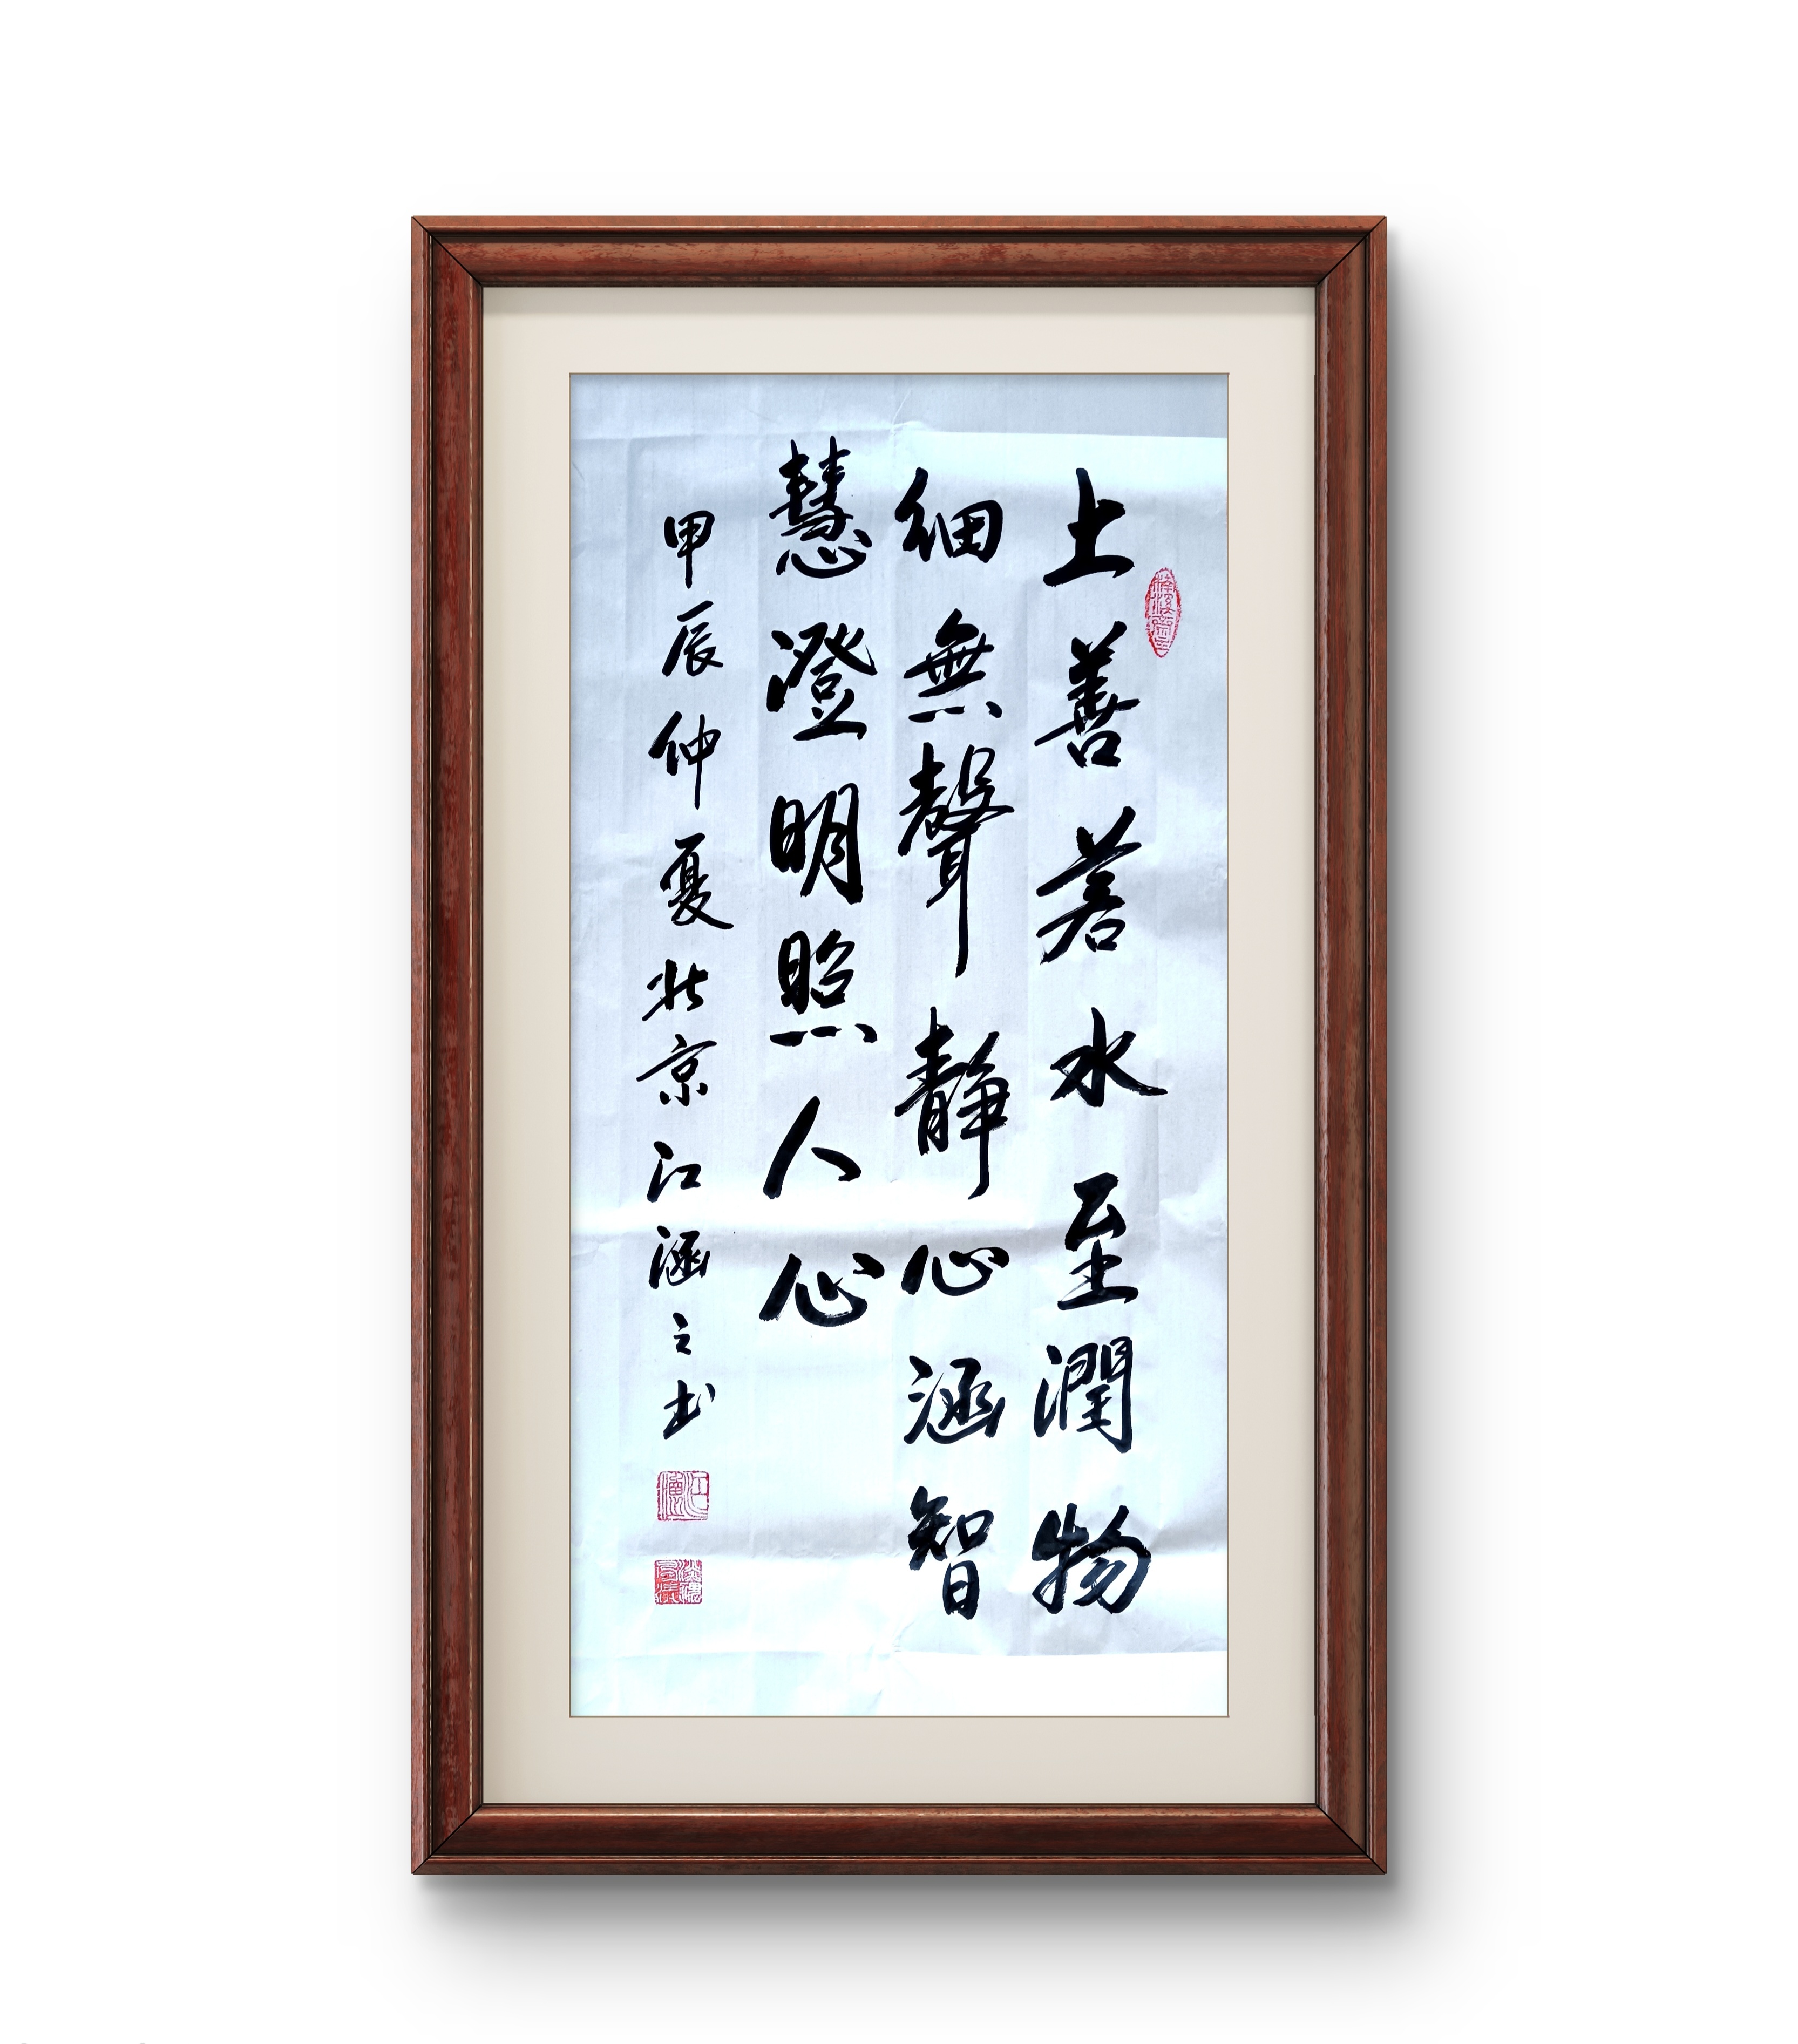 上善若水至潤物
細無聲靜心涵智
慧澄明照人心
甲辰仲夏北京江涵之书